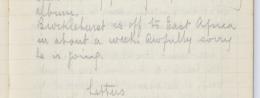 albums.
Brocklehurst is off to East Africa
in about a week. Awfully sorry
he is going.
Letters